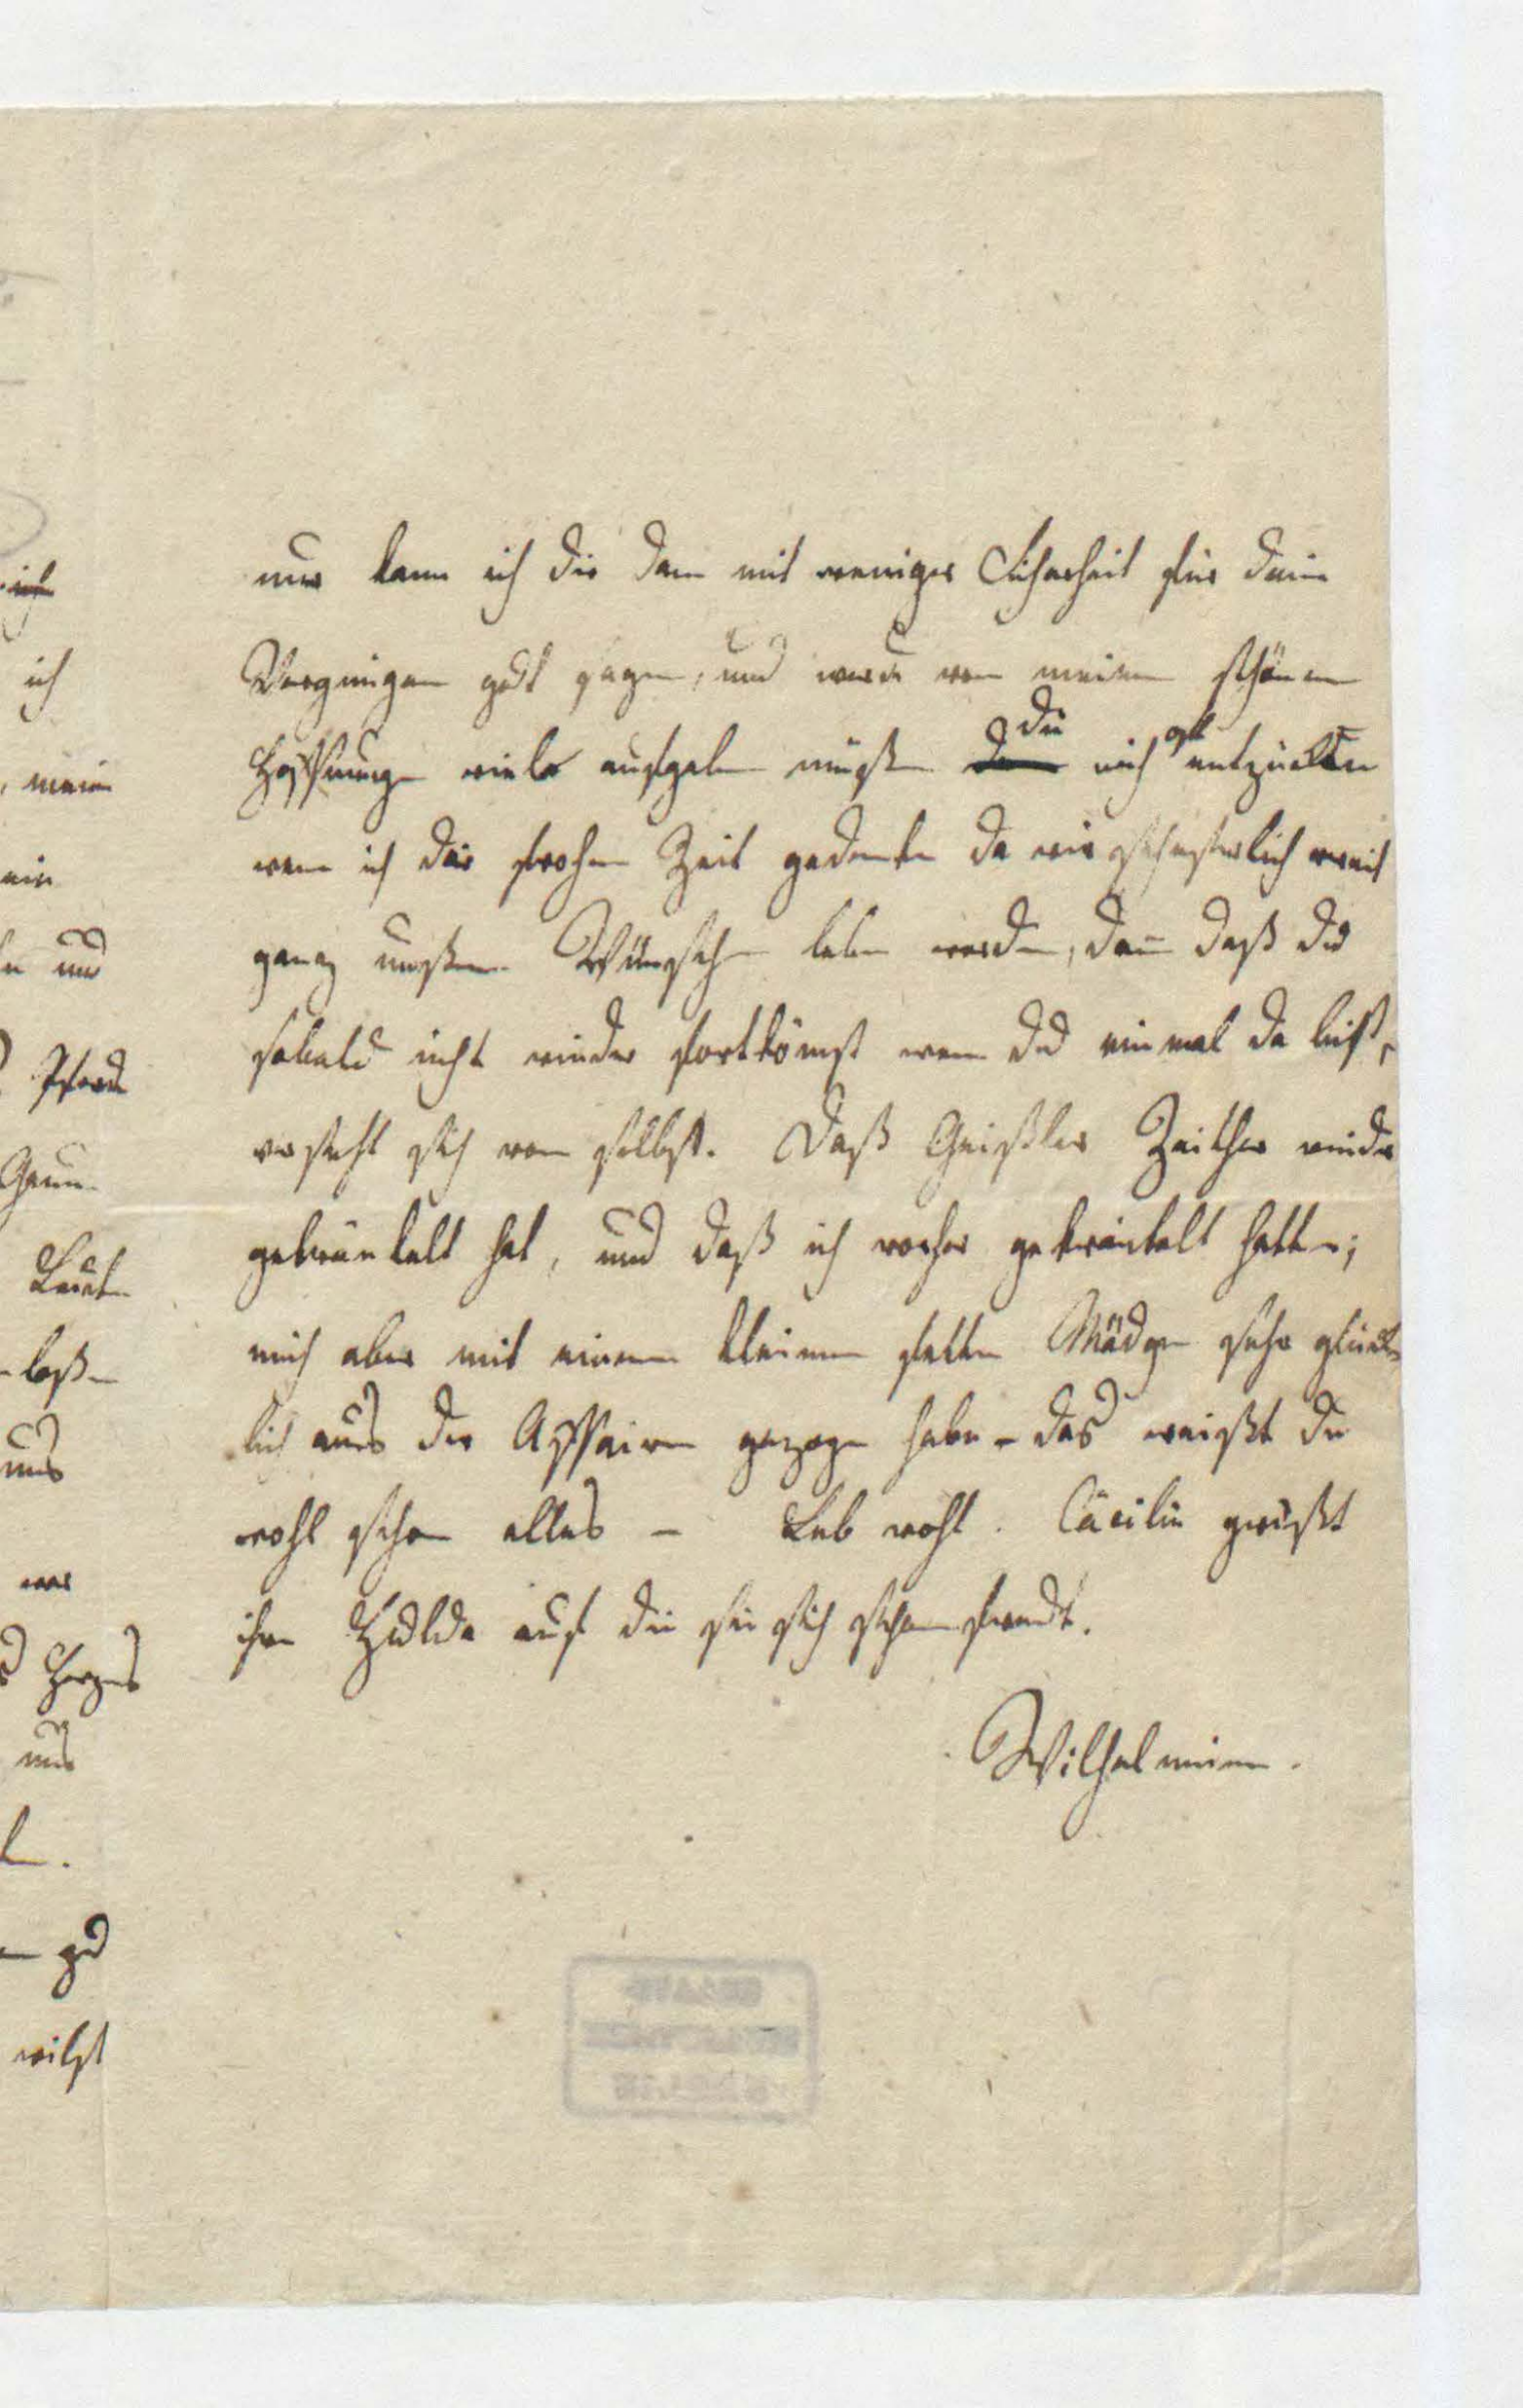 nur kann ich dir dann mit weniger Sicherheit für dein
Vergnügen gut sagen, und werde von meinen schönen
Hoffnungen viele aufgeben müßen die mich oft entzükten
wenn ich der frohen Zeit gedenke da wir schwesterlich
ganz unßern Wünschen leben werden, den daß du
sobald nicht wieder fortkömst wenn du ein mal da bist,
versteht sich von selbst. Daß Geißler Zeither wieder
gekränkelt hat, und daß ich vorher gekränkelt hatte;
mich aber mit einem kleinen fetten Mädgen sehr glük
lich aus der Affaire gezogen habe – das weißt du
wohl schon alles – Leb wohl. Cäcilie grüßt
ihre Hulda auf die sie sich schon freudt.
Wilhelmine.
ich
ich
mein
ein
und
Pferde
Leute
uns
Herzens
uns
zu
wilst